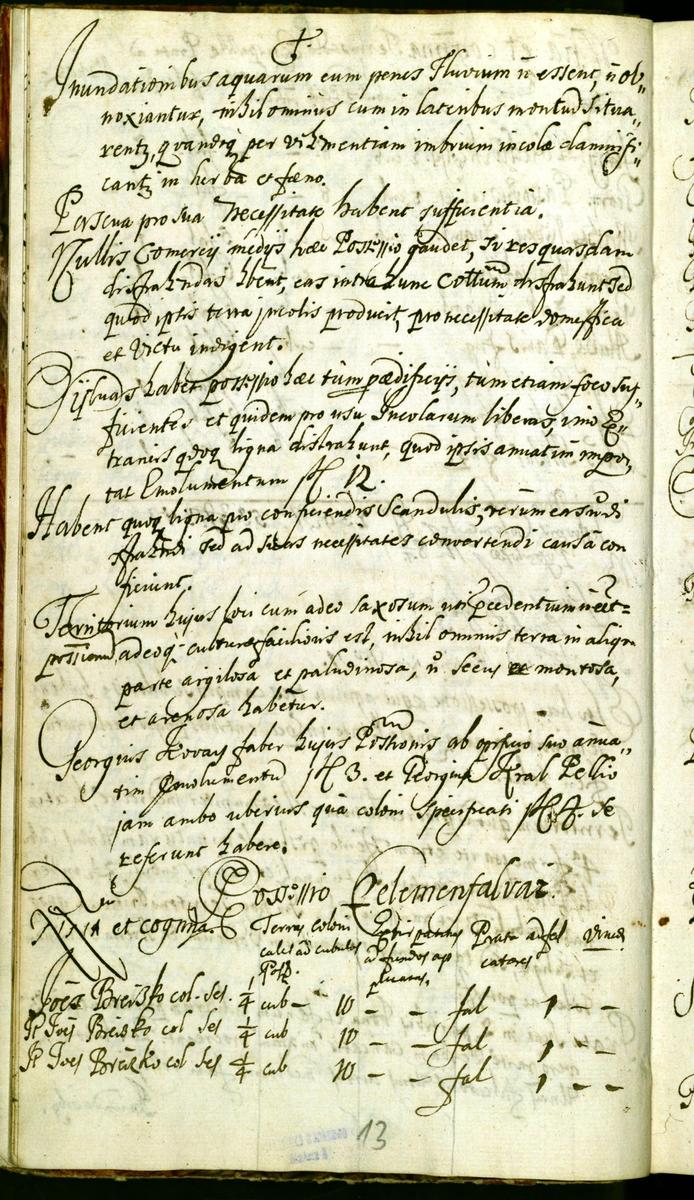 Inundationibus aquarum cum penes Fluvium ñ essent, ñ ob=
noxiantur, nihilominus cum in lateribus montũ situa=
rentr, quandoq per vehementiam imbrium incolæ damnifi=
cantr in herba et fæno.
Pascua pro sua necessitate habent sufficientia.
Nullis Comercij medijs hæc Possessio gaudet, si res quasdam
distrahendas hbent, eas intra hunc Cottum distrahunt sed
quod ipsis terra incolis producit, pro necessitate domestica
et Victu indigent.
Sylvas habet possessio hæc tum p ædificijs, tum etiam foco suf=
ficientes et quidem pro usu Incolarum liberas, imo Ex=
traneis qdoq ligna distrahunt, quod ipsis annuatim impor=
tat Emolumentum fl 12.
Habent quoq ligna pro conficiendis Scandulis, verum eas ñ di
strahendi sed ad suas necessitates convertendi causa con
ficiunt.
Territorium hujus loci cum adeo saxosum uti præcedentium ñ est=
possionum, adeoq culturæ facilioris est, nihil ominus terra in aliqua
parte argilosa et paludinosa, ñ secus montosa,
et arenosa habetur.
Georgius Kovacs faber hujus Possionis ab opificio suo annua=
tim Emolumentũ fl 3. et Georgius Kral Pellio
jam ambo uberius quã coloni specificati fl. 4. se
referunt habere.
Possessio Kelemenfalvai.
et cognina Terris coloni Extirpatitiis Prata ad fal Vineæ
cales ad cubulos ad fundos ap catores
Poss. plicatas.
Joes Breisko col. ses. 1/4 cub — 10 — — fal 1 — —
Joes Breisko col ses 1/4 cub 10 — — fal 1 — —
Joes Breisko col ses 1/4 cub 10 — — fal 1 — —
13